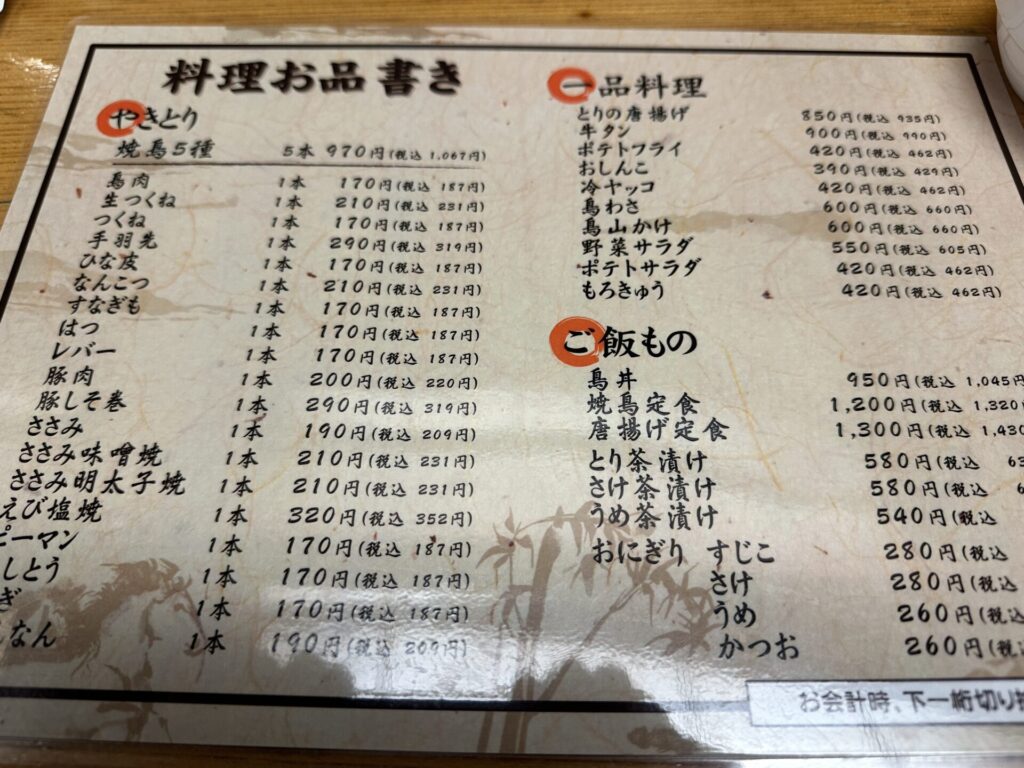 料理お品書き
やきとり
焼鳥5種 5本 970円(税込 1,067円)
鳥肉 1本 170円(税込 187円)
生つくね 1本 210円(税込 231円)
つくね 1本 170円(税込 187円)
手羽先 1本 290円(税込 319円)
ひな皮 1本 170円(税込 187円)
なんこつ 1本 210円(税込 231円)
すなぎも 1本 170円(税込 187円)
はつ 1本 170円(税込 187円)
レバー 1本 170円(税込 187円)
豚肉 1本 200円(税込 220円)
豚しそ巻 1本 290円(税込 319円)
ささみ 1本 190円(税込 209円)
ささみ味噌焼 1本 210円(税込 231円)
ささみ明太子焼 1本 210円(税込 231円)
えび塩焼 1本 320円(税込 352円)
ピーマン 1本 170円(税込 187円)
しとう 1本 170円(税込 187円)
ぎ 1本 170円(税込 187円)
なん 1本 190円(税込 209円)
一品料理
とりの唐揚げ 850円(税込 935円)
牛タン 900円(税込 990円)
ポテトフライ 420円(税込 462円)
おしんこ 390円(税込 429円)
冷ヤッコ 420円(税込 462円)
鳥わさ 600円(税込 660円)
鳥山かけ 600円(税込 660円)
野菜サラダ 550円(税込 605円)
ポテトサラダ 420円(税込 462円)
もろきゅう 420円(税込 462円)
ご飯もの
鳥丼 950円(税込 1,045円
焼鳥定食 1,200円(税込 1,320
唐揚げ定食 1,300円(税込 1,430
とり茶漬け 580円(税込 63
さけ茶漬け 580円(税込 6
うめ茶漬け 540円(税込
おにぎり すじこ 280円(税込
さけ 280円(税込
うめ 260円(税込
かつお 260円(税
お会計時、下一桁切り